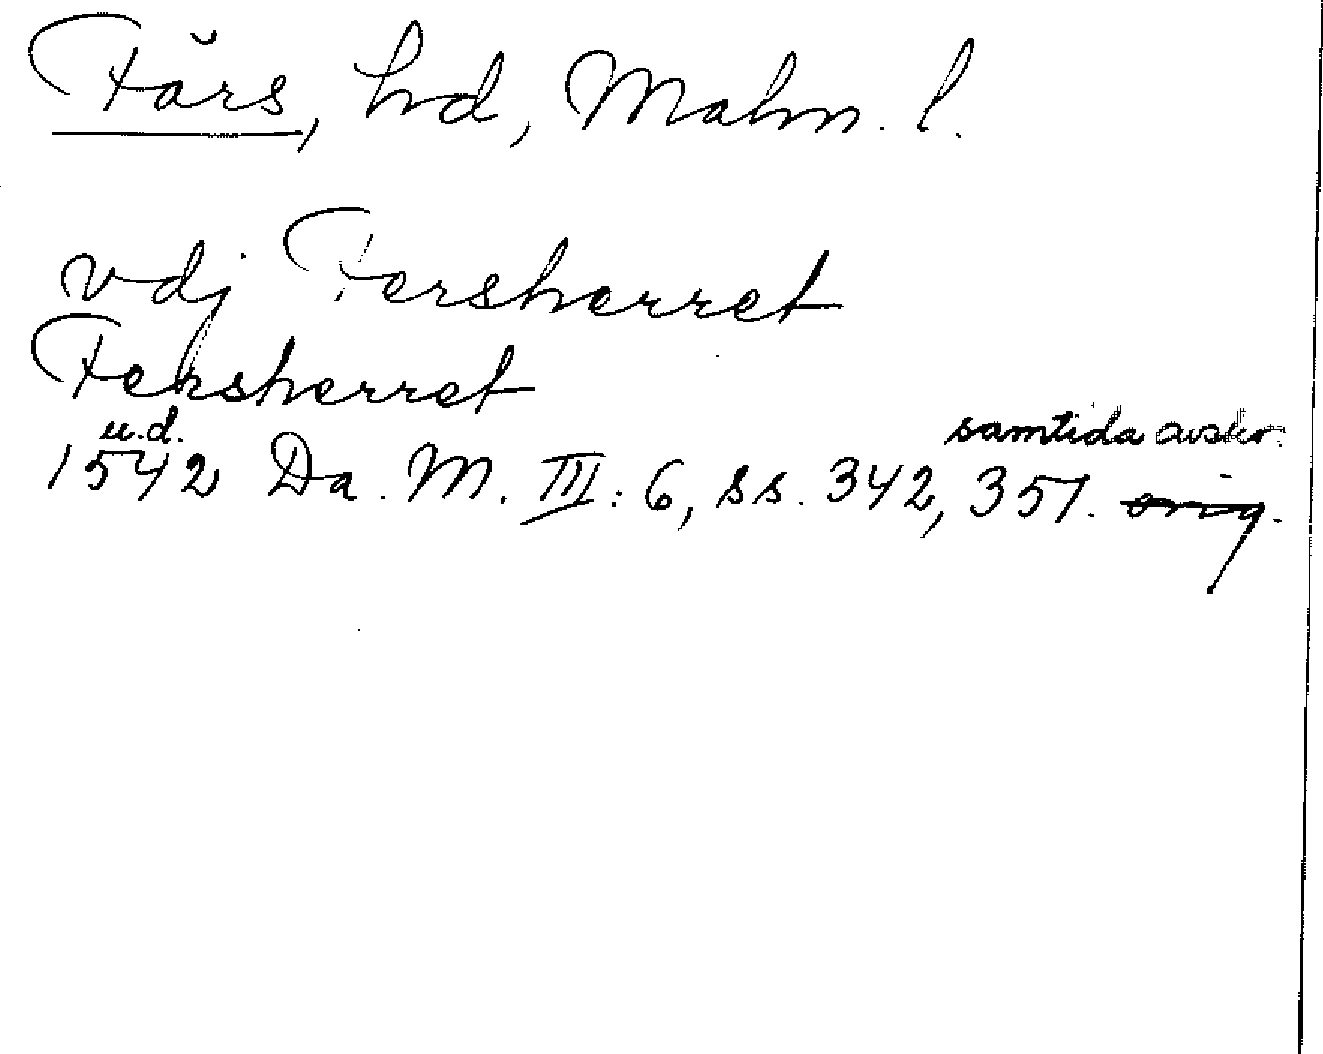 Färs, hd, Malm. l.
vdj Fersherret
Fersherret
u.d. samtida avskr.
1542 Da. M. III: 6, ss. 342, 351. orig.